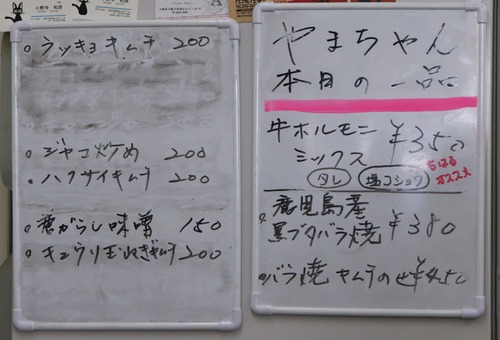 ラッキョキムチ 200
ジャコ炒め 200
ハクサイキムチ 200
唐がらし味噌 150
キュウリ玉ねぎキムチ 200
やまちゃん
本日の一品
牛ホルモン ¥350
ミックス
タレ 塩コショウ
ちはる
オススメ
鹿児島産
黒ブタバラ焼 ¥380
バラ焼キムチのせ ¥450
A